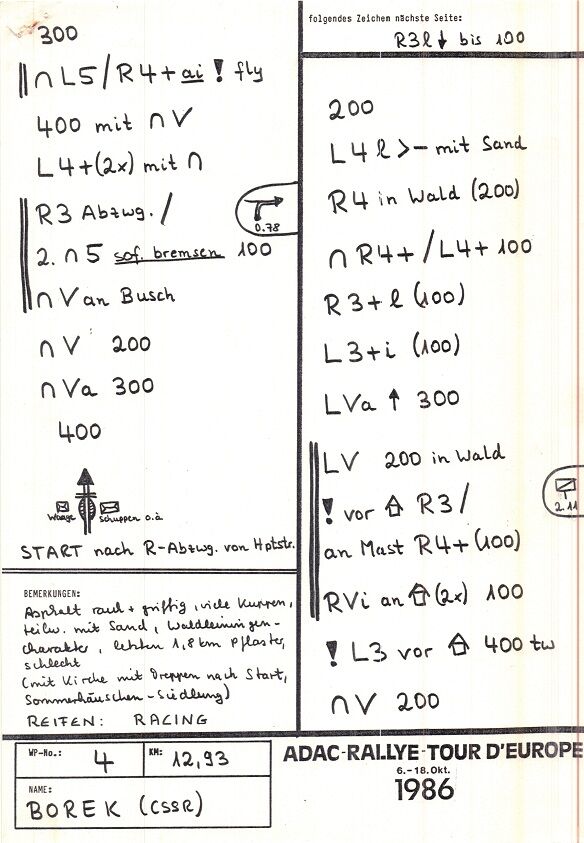 300
∩ L5/R4+ ai ! fly
400 mit ∩ V
L4+(2x) mit ∩
R3 Abzwg. /
0.78
2. ∩ 5 sof. bremsen 100
∩ V an Busch
∩ V 200
∩ Va 300
400
Waage Schuppen o.ä.
START nach R-Abzwg. von Hptstr.
BEMERKUNGEN:
Asphalt rauh + griffig, viele Kuppen,
teilw. mit Sand, Waldleiningen-
charakter, letzten 1,8 km Pflaster,
schlecht
(mit Kirche mit Treppen nach Start,
Sommerhäuschen-Siedlung)
REIFEN: RACING
WP-No.: 4 KM: 12,93
NAME:
BOREK (CSSR)
folgendes Zeichen nächste Seite:
R3l ↓ bis 100
200
L4 l >– mit Sand
R4 in Wald (200)
∩ R4+ / L4+ 100
R3+ l (100)
L3+i (100)
LVa ↑ 300
LV 200 in Wald
! vor ⇧ R3 /
2.11
an Mast R4+ (100)
RVi an ⇧ (2x) 100
! L3 vor ⇧ 400 tw
∩ V 200
ADAC-RALLYE-TOUR D'EUROPE
6.-18.Okt.
1986